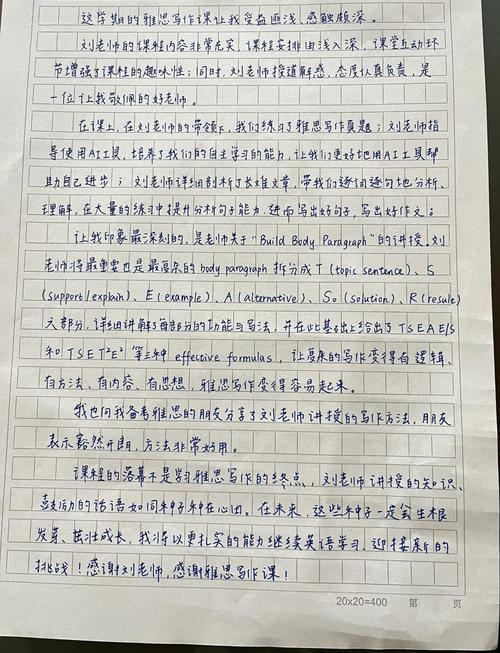 这学期的雅思写作课让我受益匪浅、感触颇深。
刘老师的课程内容非常充实,课程安排由浅入深,课堂互动环
节增强了课程的趣味性;同时,刘老师授道解惑,态度认真负责,是
一位让我敬佩的好老师。
在课上,在刘老师的带领下,我们练习了雅思写作真题;刘老师指
导使用AI工具,培养了我们的自主学习的能力,让我们更好地用AI工具帮
助自己进步;刘老师详细剖析了长难文章,带我们逐词逐句地分析、
理解,在大量的练习中提升分析句子能力,进而写出好句子,写出好作文;
让我印象最深刻的,是老师关于"Build Body Paragraph"的讲授,刘
老师将最重要也是最复杂的body paragraph 拆分成T(topic sentence)、S
(support/explain)、E(example)、A(alternative)、So(solution)、R(resule)
六部分,详细讲解了每部分的功能与写法,并在此基础上给出了TSEAE/S
和TSET²E²等三种effective formulas,让复杂的写作变得有逻辑、
有方法、有内容、有思想,雅思写作变得容易起来。
我也向我备考雅思的朋友分享了刘老师讲授的写作方法,朋友
表示豁然开朗,方法非常好用。
课程的落幕不是学习雅思写作的终点,刘老师讲授的知识、
鼓励的话语如同种子种在心田。在未来,这些种子一定会生根
发芽、茁壮成长,我将以更扎实的能力继续英语学习、迎接新的
挑战!感谢刘老师,感谢雅思写作课!
20x20=400 第 页